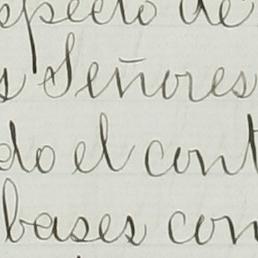 specto de
s Señores
do el cont
bases con